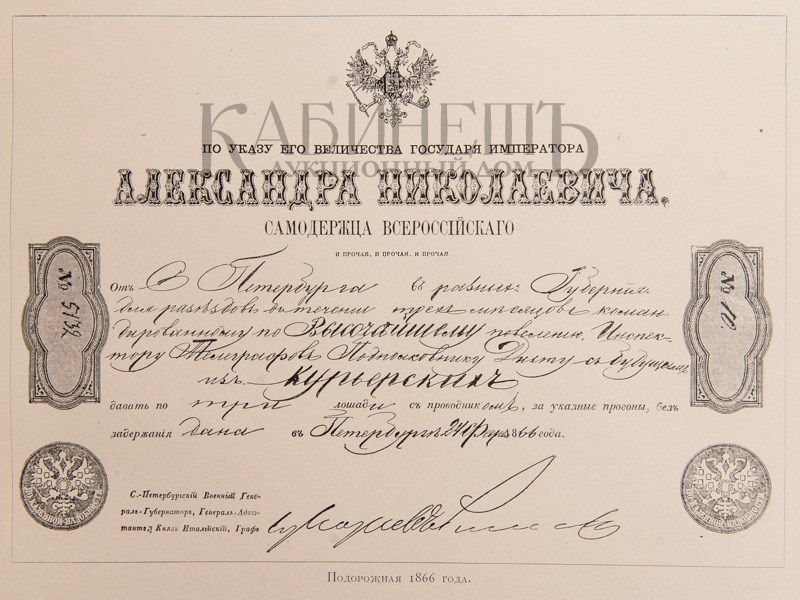 КАБИНЕТЪ
АУКЦИОННЫЙ ДОМ
ПО УКАЗУ ЕГО ВЕЛИЧЕСТВА ГОСУДАРЯ ИМПЕРАТОРА
АЛЕКСАНДРА НИКОЛАЕВИЧА,
САМОДЕРЖЦА ВСЕРОССІЙСКАГО
И ПРОЧАЯ, И ПРОЧАЯ, И ПРОЧАЯ
Отъ С Петербурга въ разныя Губерніи
для разъѣздовъ въ теченіи трехъ мѣсяцовъ коман
дированному по Высочайшему повелѣнію, Инспек
тору Телеграфовъ Подполковнику съ будущимъ
изъ курьерскихъ
давать по три лошади съ проводникомъ, за указные прогоны, безъ
задержанія Дана въ Петербургѣ 24 1866 года.
№ 5132
№ 10.
ПО КАЗЕННОЙ НАДОБНОСТИ
ПО КАЗЕННОЙ НАДОБНОСТИ
С.-Петербургскій Военный Гене-
ралъ-Губернаторъ, Генералъ-Адъю-
тантъ, Князь Италійскій, Графъ
Подорожная 1866 года.